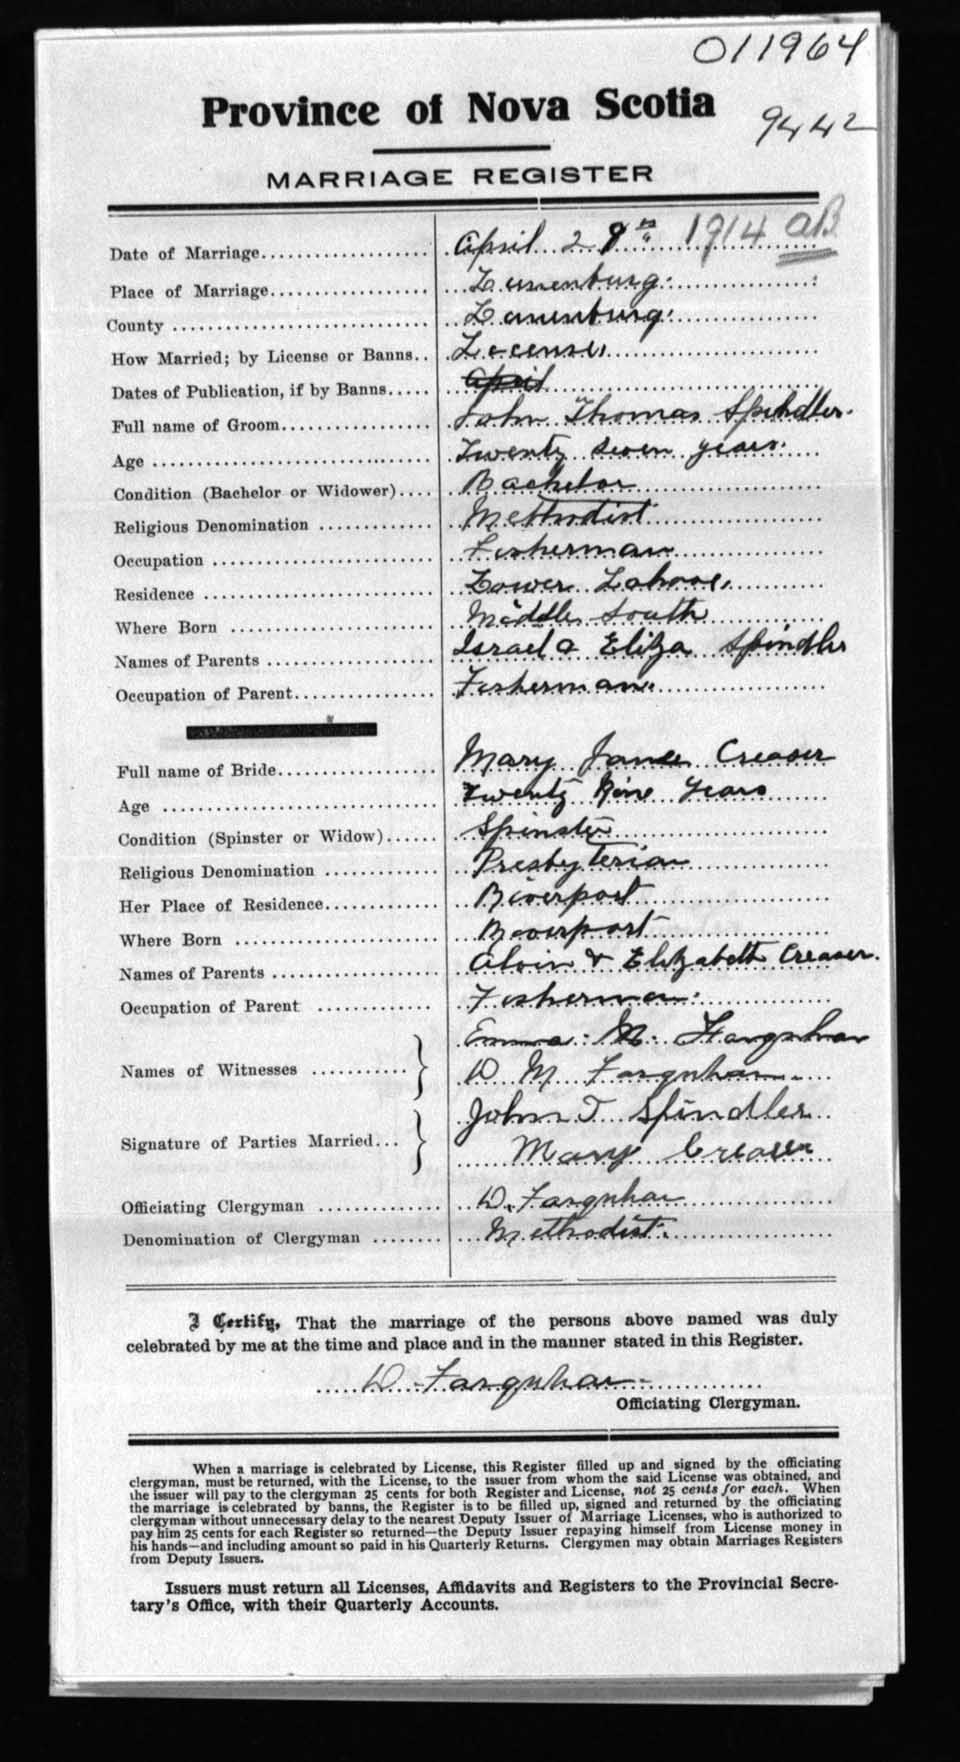 011964
Province of Nova Scotia
9442
MARRIAGE REGISTER
Date of Marriage.................... April 29th 1914 AB.
Place of Marriage................... Lunenburg.
County .............................. Lunenburg.
How Married; by License or Banns.. License.
Dates of Publication, if by Banns..... April
Full name of Groom................. John Thomas Spindler.
Age ................................ Twenty Seven years.
Condition (Bachelor or Widower).... Bachelor
Religious Denomination ............. Methodist
Occupation .......................... Fisherman
Residence ........................... Lower Lahave.
Where Born ........................ Middle South
Names of Parents .................... Israel & Eliza Spindler
Occupation of Parent................ Fisherman.
Full name of Bride................... Mary Jane Creaser
Age ................................ Twenty Nine Years
Condition (Spinster or Widow)...... Spinster
Religious Denomination ............. Presbyterian
Her Place of Residence.............. Riverport
Where Born ........................ Riverport
Names of Parents .................... Alvin & Elizabeth Creaser.
Occupation of Parent .............. Fisherman.
Emma. M. Farquhar
Names of Witnesses ........... } W M Farquhar.
John T Spindler
Signature of Parties Married... } Mary Creaser
Officiating Clergyman ............... W. Farquhar
Denomination of Clergyman ........ Methodist.
I Certify, That the marriage of the persons above named was duly
celebrated by me at the time and place and in the manner stated in this Register.
W. Farquhar
Officiating Clergyman.
When a marriage is celebrated by License, this Register filled up and signed by the officiating
clergyman, must be returned, with the License, to the issuer from whom the said License was obtained, and
the issuer will pay to the clergyman 25 cents for both Register and License, not 25 cents for each. When
the marriage is celebrated by banns, the Register is to be filled up, signed and returned by the officiating
clergyman without unnecessary delay to the nearest Deputy Issuer of Marriage Licenses, who is authorized to
pay him 25 cents for each Register so returned—the Deputy Issuer repaying himself from License money in
his hands—and including amount so paid in his Quarterly Returns. Clergymen may obtain Marriages Registers
from Deputy Issuers.
Issuers must return all Licenses, Affidavits and Registers to the Provincial Secre-
tary's Office, with their Quarterly Accounts.